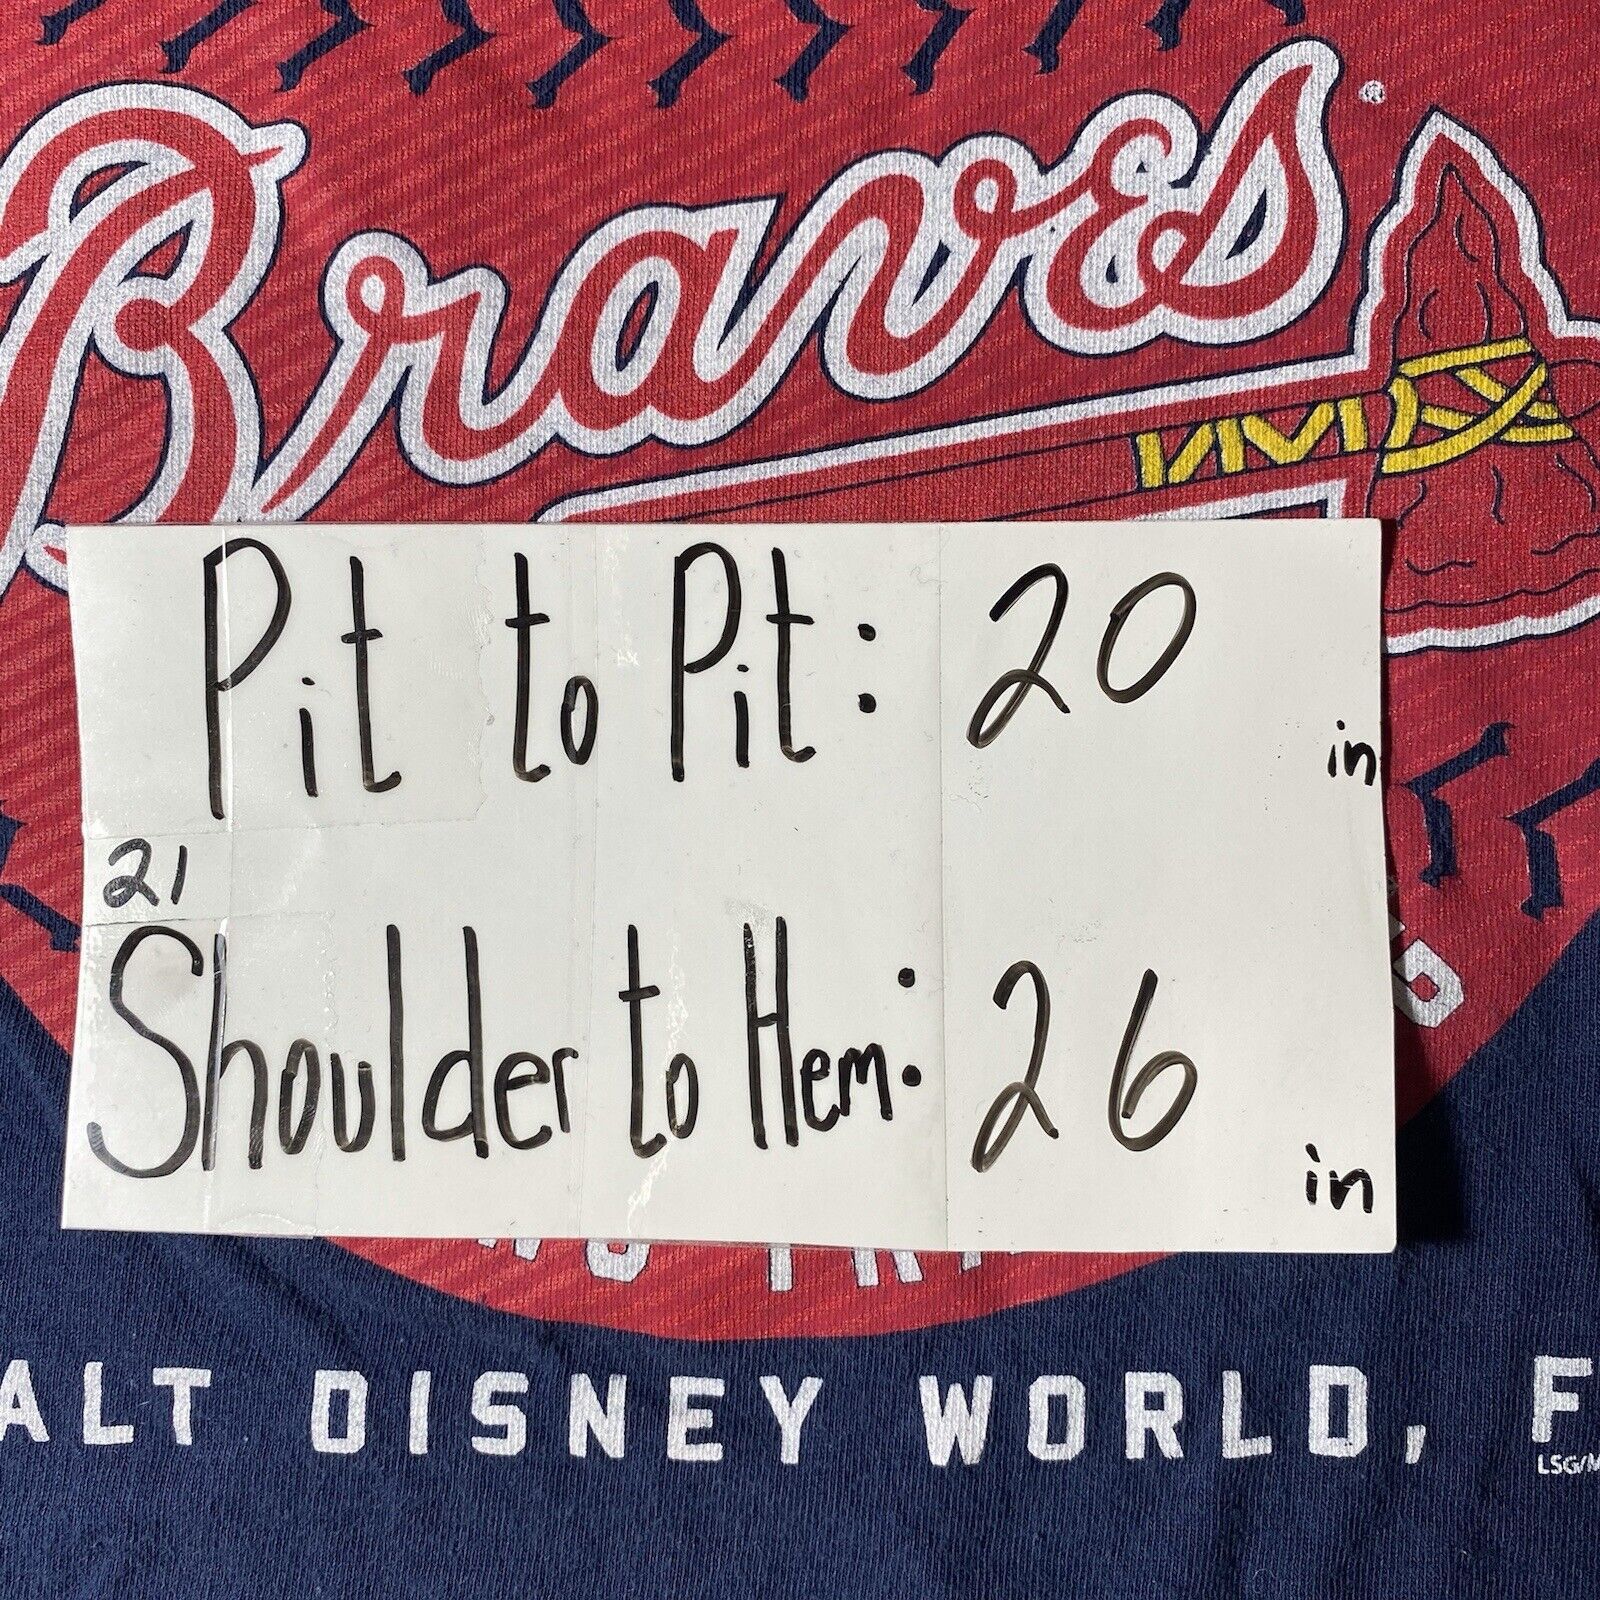 Braves®
Pit to Pit: 20
in
21
Shoulder to Hem: 26
in
ALT DISNEY WORLD, F
LSG/M